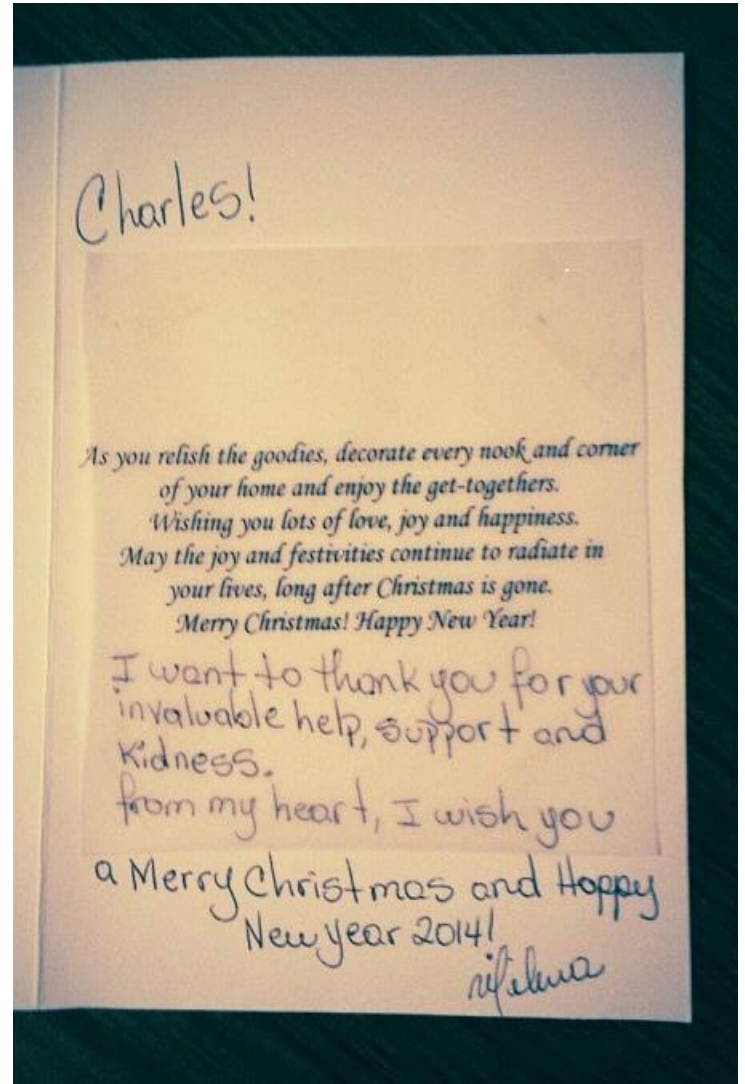 Charles!
As you relish the goodies, decorate every nook and corner
of your home and enjoy the get-togethers.
Wishing you lots of love, joy and happiness.
May the joy and festivities continue to radiate in
your lives, long after Christmas is gone.
Merry Christmas! Happy New Year!
I want to thank you for your
invaluable help, support and
Kidness.
from my heart, I wish you
a Merry Christmas and Happy
New year 2014!